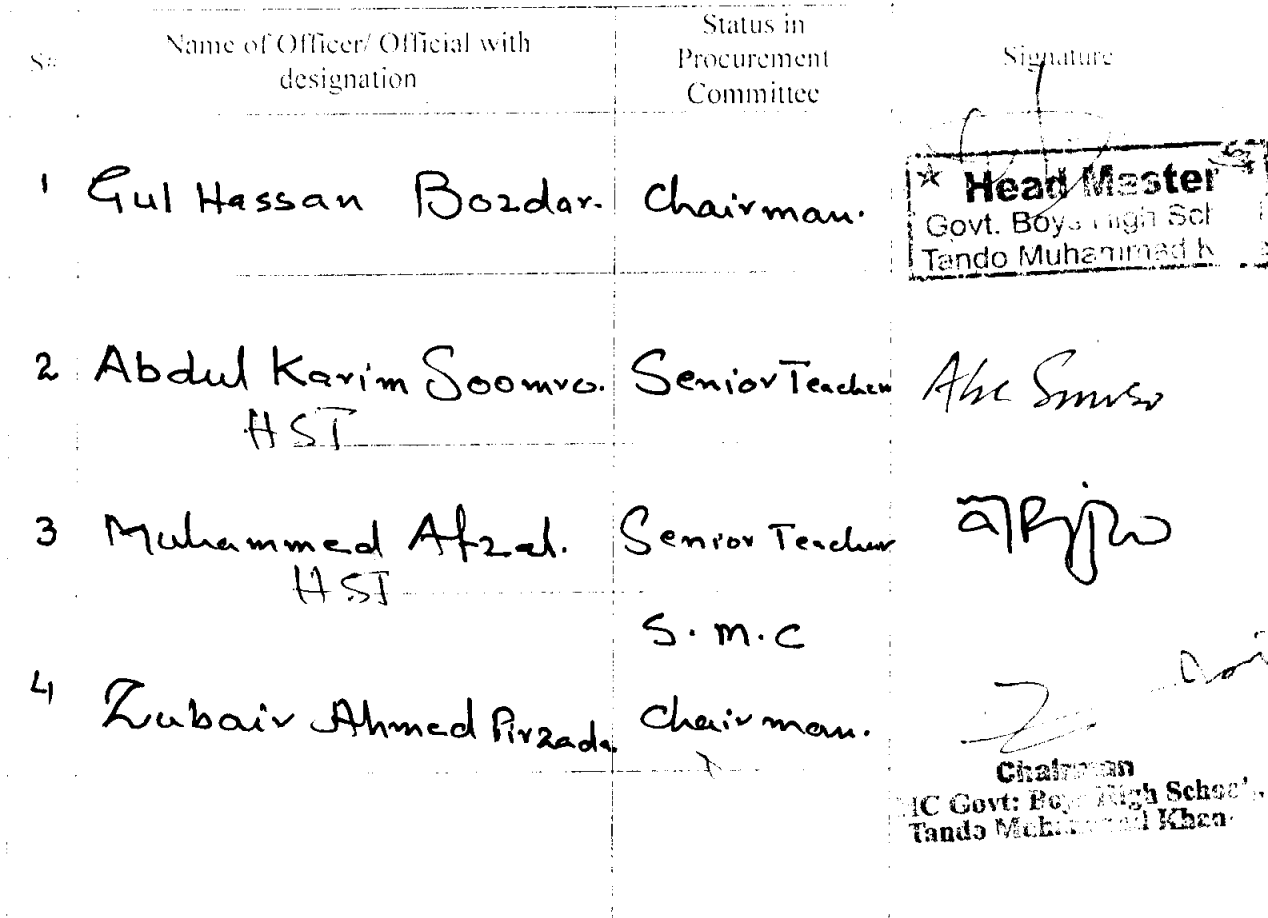 S#
Name of Officer/ Official with
designation
Status in
Procurement
Committee
Signature
1 Gul Hassan Bozdar. Chairman.
★ Head Master ★
Govt. Boys High Sch
Tando Muhammad K
2 Abdul Karim Soomro. Senior Teacher
HST
3 Muhammed Afzal. Senior Teacher
HST
4 Zubair Ahmed Pirzada.
S.M.C
Chairman.
Chairman
MC Govt: Boys High School,
Tando Mohammad Khan